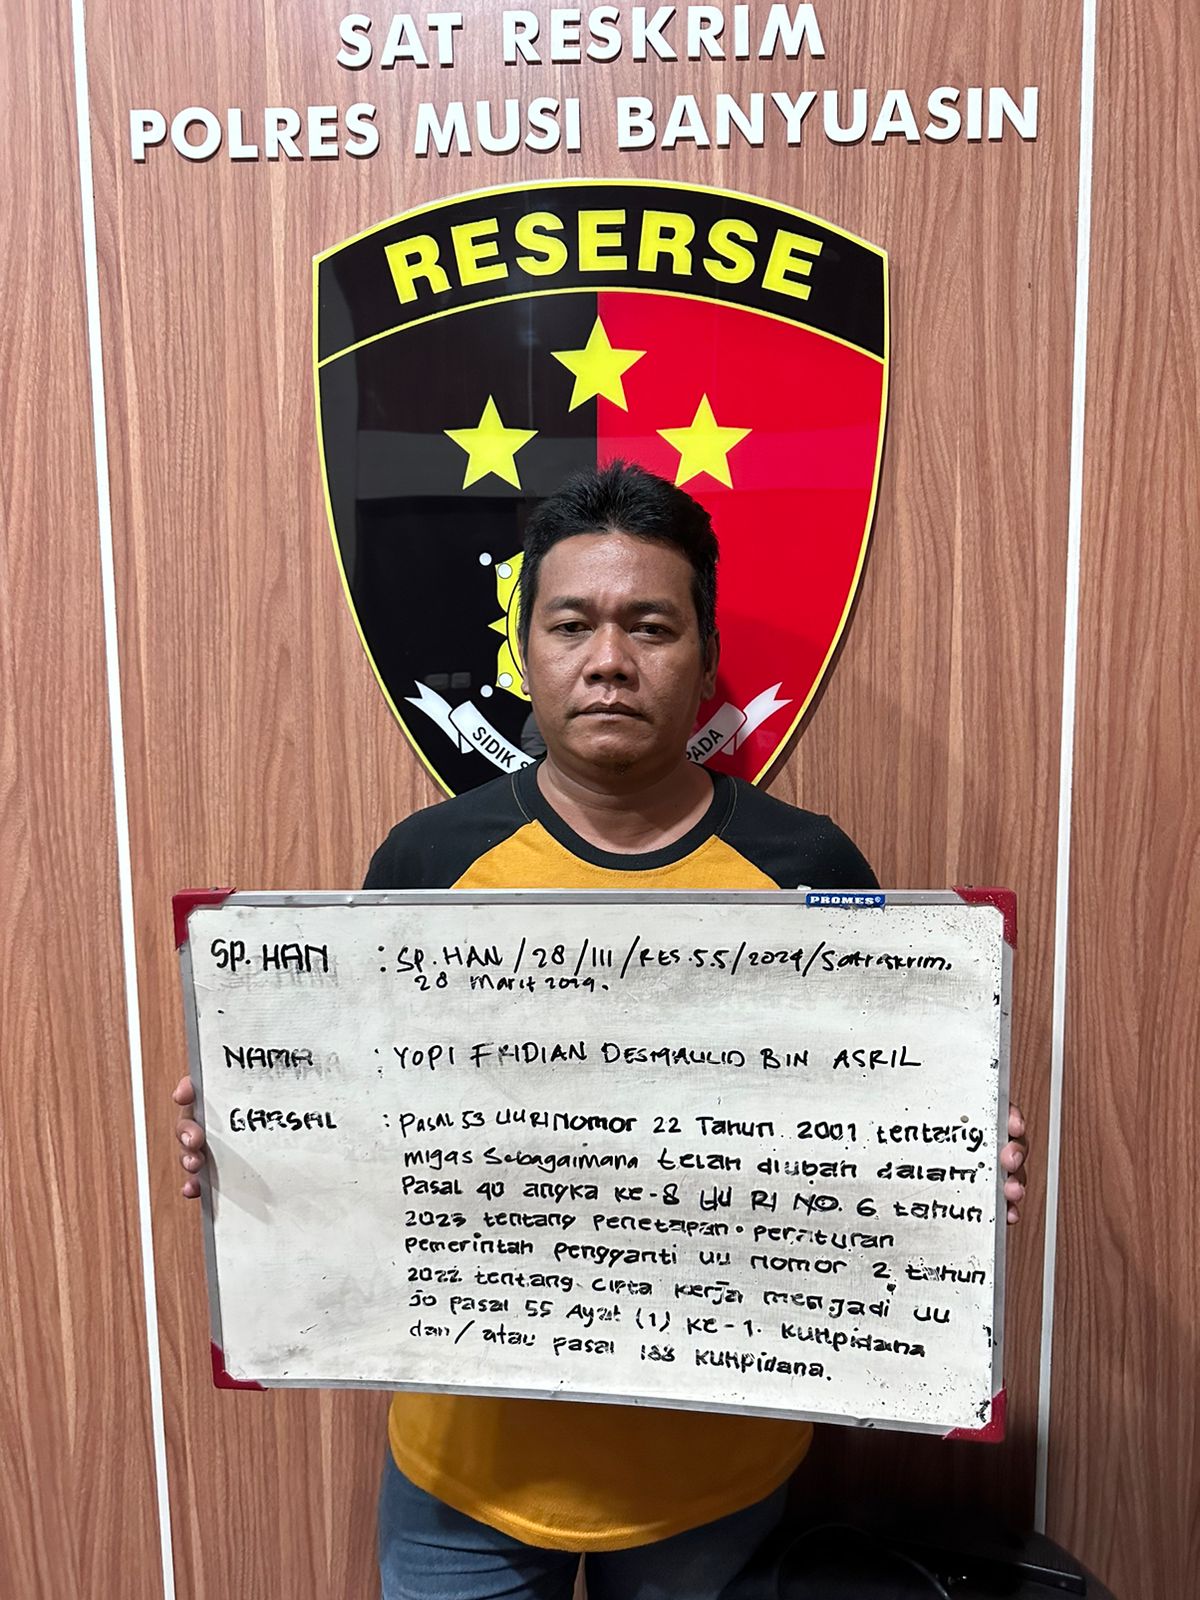 SAT RESKRIM
POLRES MUSI BANYUASIN
RESERSE
SIDIK S
PADA
PROMES
SP. HAN : SP. HAN / 28 / III / RES. 5.5 / 2024 / Satreskrim,
28 Maret 2024.
NAMA : YOPI FRIDIAN DESMAULID BIN ASRIL
GARSAL : Pasal 53 UU RI Nomor 22 Tahun 2001 tentang
migas Sebagaimana telah diubah dalam
Pasal 40 angka ke-8 UU RI NO. 6 tahun
2023 tentang penetapan peraturan
Pemerintah pengganti uu nomor 2 tahun
2022 tentang cipta kerja menjadi uu
Jo pasal 55 Ayat (1) ke-1 KUHpidana
dan/atau pasal 188 KUHpidana.